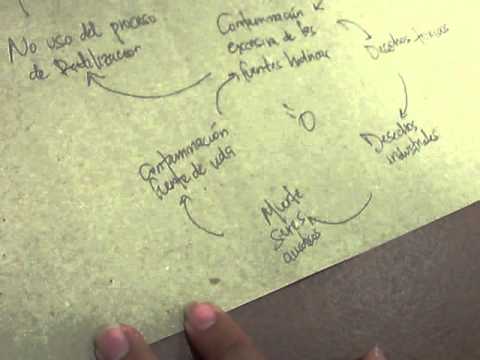 No uso del proceso
de Reutilización
Contaminación
excesiva de las
fuentes hídricas
Desechos tóxicos
Desechos
industriales
Muerte
seres
acuáticos
Contaminación
fuente de vida